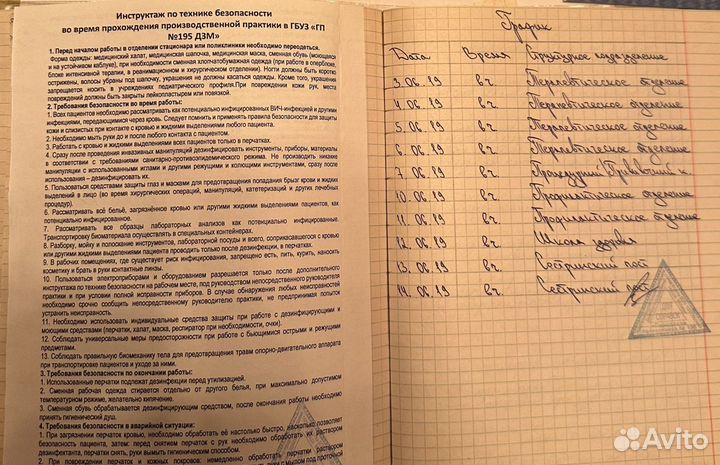 Инструктаж по технике безопасности
во время прохождения производственной практики в ГБУЗ «ГП
№195 ДЗМ»
1. Перед началом работы в отделении стационара или поликлиники необходимо переодеться.
Форма одежды: медицинский халат, медицинская шапочка, медицинская маска, сменная обувь (моющаяся
и на устойчивом каблуке), при необходимости сменная хлопчатобумажная одежда (при работе в оперблоке,
блоке интенсивной терапии, в реанимационном и хирургическом отделении). Ногти должны быть коротко
острижены, волосы убраны под шапочку, украшения не должны касаться одежды. Кроме того, украшения
запрещается носить в учреждениях педиатрического профиля. При повреждении кожи рук, места
повреждений должны быть закрыты лейкопластырем или повязкой.
2. Требования безопасности во время работы:
1. Всех пациентов необходимо рассматривать как потенциально инфицированных ВИЧ-инфекцией и другими
инфекциями, передающимися через кровь. Следует помнить и применять правила безопасности для защиты
кожи и слизистых при контакте с кровью и жидкими выделениями любого пациента.
2. Необходимо мыть руки до и после любого контакта с пациентом.
3. Работать с кровью и жидкими выделениями всех пациентов только в перчатках.
4. Сразу после проведения инвазивных манипуляций дезинфицировать инструменты, приборы, материалы
в соответствии с требованиями санитарно-противоэпидемического режима. Не производить никакие
манипуляции с использованными иглами и другими режущими и колющими инструментами, сразу после
использования – дезинфицировать их.
5. Пользоваться средствами защиты глаз и масками для предотвращения попадания брызг крови и жидких
выделений в лицо (во время хирургических операций, манипуляций, катетеризаций и других лечебных
процедур).
6. Рассматривать всё бельё, загрязнённое кровью или другими жидкими выделениями пациентов, как
потенциально инфицированное.
7. Рассматривать все образцы лабораторных анализов как потенциально инфицированные.
Транспортировку биоматериала осуществлять в специальных контейнерах.
8. Разборку, мойку и полоскание инструментов, лабораторной посуды и всего, соприкасавшегося с кровью
или другими жидкими выделениями пациента проводить только после дезинфекции, в перчатках.
9. В рабочих помещениях, где существует риск инфицирования, запрещено есть, пить, курить, наносить
косметику и брать в руки контактные линзы.
10. Пользоваться электроприборами и оборудованием разрешается только после дополнительного
инструктажа по технике безопасности на рабочем месте, под руководством непосредственного руководителя
практики и при условии полной исправности приборов. В случае обнаружения любых неисправностей
необходимо срочно сообщить непосредственному руководителю практики, не предпринимая попыток
устранить неисправность.
11. Необходимо использовать индивидуальные средства защиты при работе с дезинфицирующими и
моющими средствами (перчатки, халат, маска, респиратор при необходимости, очки).
12. Соблюдать универсальные меры предосторожности при работе с бьющимися острыми и режущими
предметами.
13. Соблюдать правильную биомеханику тела для предотвращения травм опорно-двигательного аппарата
при транспортировке пациентов и уходе за ними.
3. Требования безопасности по окончании работы:
1. Использованные перчатки подлежат дезинфекции перед утилизацией.
2. Сменная рабочая одежда стирается отдельно от другого белья, при максимально допустимом
температурном режиме, желательно кипячение.
3. Сменная обувь обрабатывается дезинфицирующим средством, после окончания работы необходимо
принять гигиенический душ.
4. Требования безопасности в аварийной ситуации:
1. При загрязнении перчаток кровью, необходимо обработать её настолько быстро, насколько позволяет
безопасность пациента, затем: перед снятием перчаток с рук необходимо обработать их раствором
дезинфектанта, перчатки снять, руки вымыть гигиеническим способом.
2. При повреждении перчаток и кожных покровов: немедленно обработать перчатки раствором
График
Дата Время Структурное подразделение
3.06.19 8ч. Терапевтическое отделение
4.06.19 8ч. Терапевтическое отделение
5.06.19 8ч. Терапевтическое отделение
6.06.19 8ч. Терапевтическое отделение
7.06.19 8ч. Процедурный\Прививочный к.
10.06.19 8ч. Профилактическое отделение
11.06.19 8ч. Профилактическое отделение
12.06.19 8ч. Школа здоровья
13.06.19 8ч. Сестринский пост
14.06.19 8ч. Сестринский пост
Avito